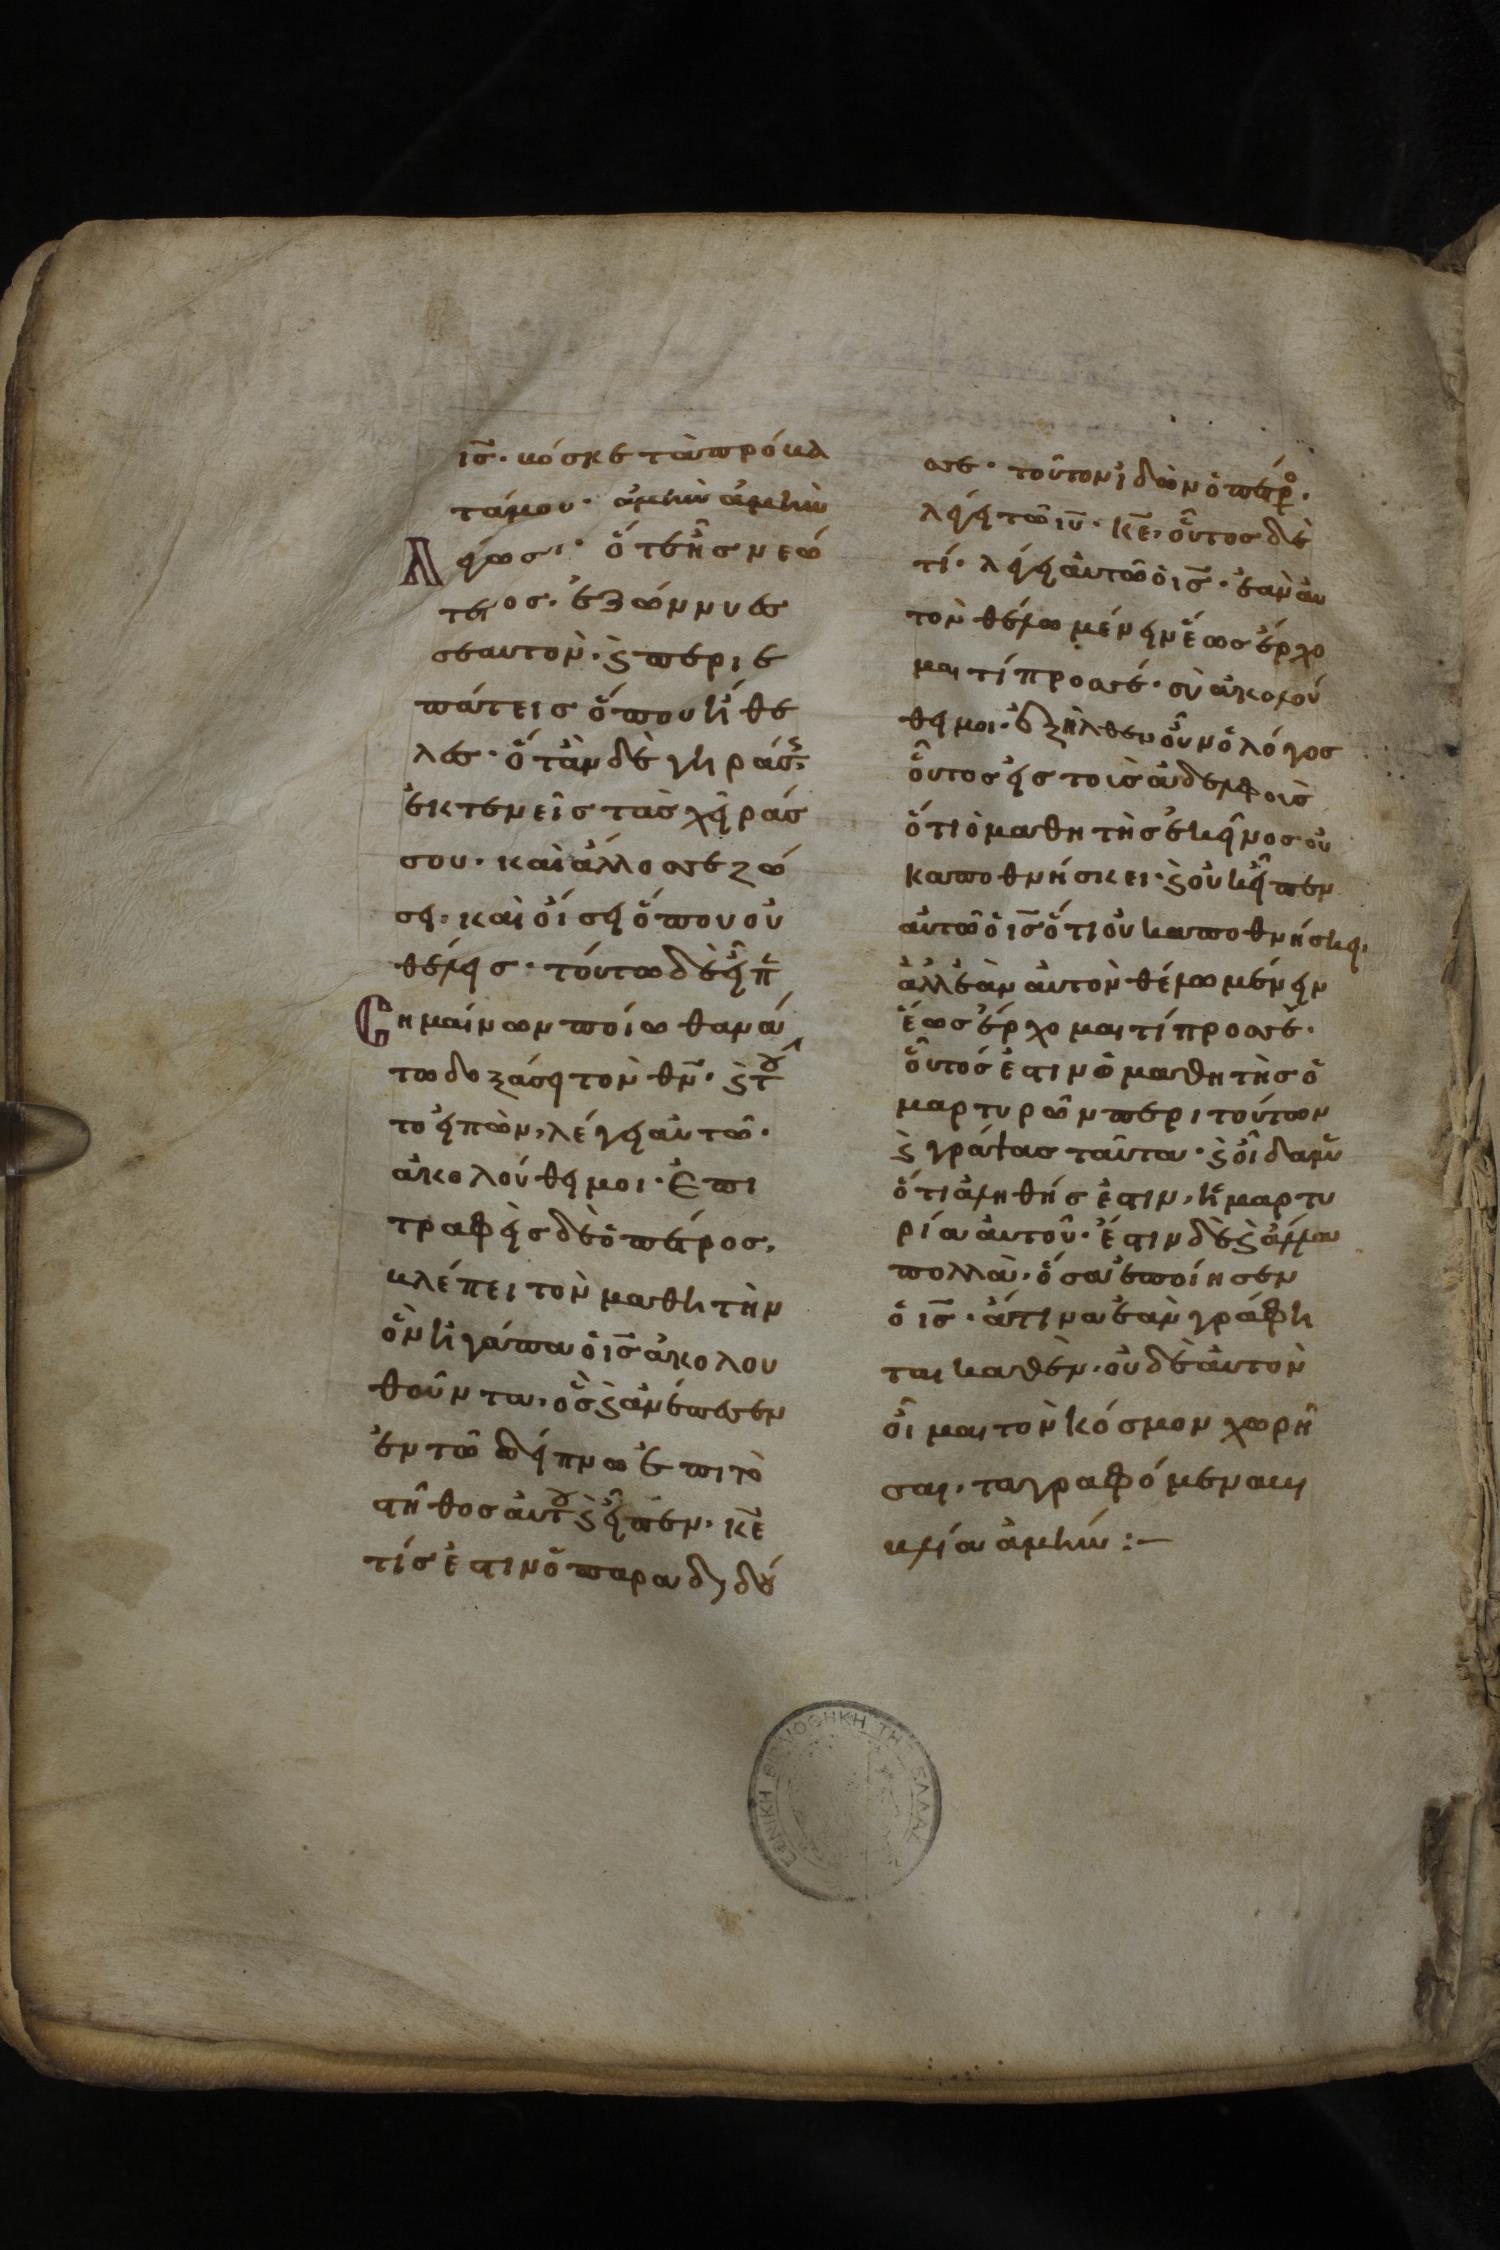 ις̅· βόσκε τὰ πρόβα
τά μου· ἀμὴν ἀμὴν
λέγω σοι· ὅτε ἦς νεώ
τερος· ἐζώννυες
σεαυτὸν· ϗ περιε
πάτεις ὅπου ἤθε
λες· ὅτὰν δὲ γηράσῃς
ἐκτενεῖς τὰς χεῖράς
σου· καὶ ἄλλος σε ζώ
σει· καὶ οἴσει ὅπου οὐ
θέλεις· τοῦτο δὲ εἶπε
Σημαίνων ποίω θανά
τω δοξάσει τὸν θν̅· ϗ του
το εἰπὼν, λέγει αὐτῶ·
ἀκολούθει μοι· Ἐπι
τραφεὶς δὲ ὁ πέτρος,
βλέπει τὸν μαθητὴν
ὃν ἠγάπα ὁ ις̅ ἀκολου
θοῦντα· ὃς ϗ ἀνέπεσεν
ἐν τῶ δείπνω ἐπι τὸ
στῆθος αὐτου ϗ εἶπεν· κε̅
τίς ἐστιν ὁ παραδιδούς
σε· τοῦτον ἰδὼν ὁ πέτρος·
λέγει τῶ ιυ̅· κε̅, οὗτος δὲ
τί· λέγει αὐτῶ ὁ ις̅· ἐὰν αυ
τὸν θέλω μένειν ἕως ἔρχο
μαι τί προς σέ· σὺ ἀκολού
θει μοι· ἐξῆλθεν οὖν ὁ λόγος
οὗτος εἰς τοὶς ἀδελφοὶς
ὅτι ὁ μαθητὴς ἐκεῖνος οὐ
κ αποθνήσκει· ϗ οὐκ εἶπεν
αὐτῶ ὁ ις̅ ὅτι οὐκ αποθνήσκει,
ἀλλ ἐὰν αὐτὸν θέλω μένειν
ἕως ἔρχομαι τί προς σέ·
οὗτός ἐστιν ὁ μαθητὴς ὁ
μαρτυρῶν περι τούτων
ϗ γράψας ταῦτα· ϗ οἴδαμεν
ὅτι ἀληθής ἐστιν, ἡ μαρτυ
ρία αὐτοῦ· ἔστιν δὲ ϗ ἄλλα
πολλὰ· ὅσα ἐποίησεν
ὁ ις̅· ἅτινα ἐὰν γράφη
ται καθὲν· οὐδὲ αὐτὸν
οἶμαι τὸν κόσμον χωρῆ
σαι, τα γραφόμενα βι
βλία ἀμήν :—
ΕΘΝΙΚΗ ΒΙΒΛΙΟΘΗΚΗ ΤΗΣ ΕΛΛΑΔ